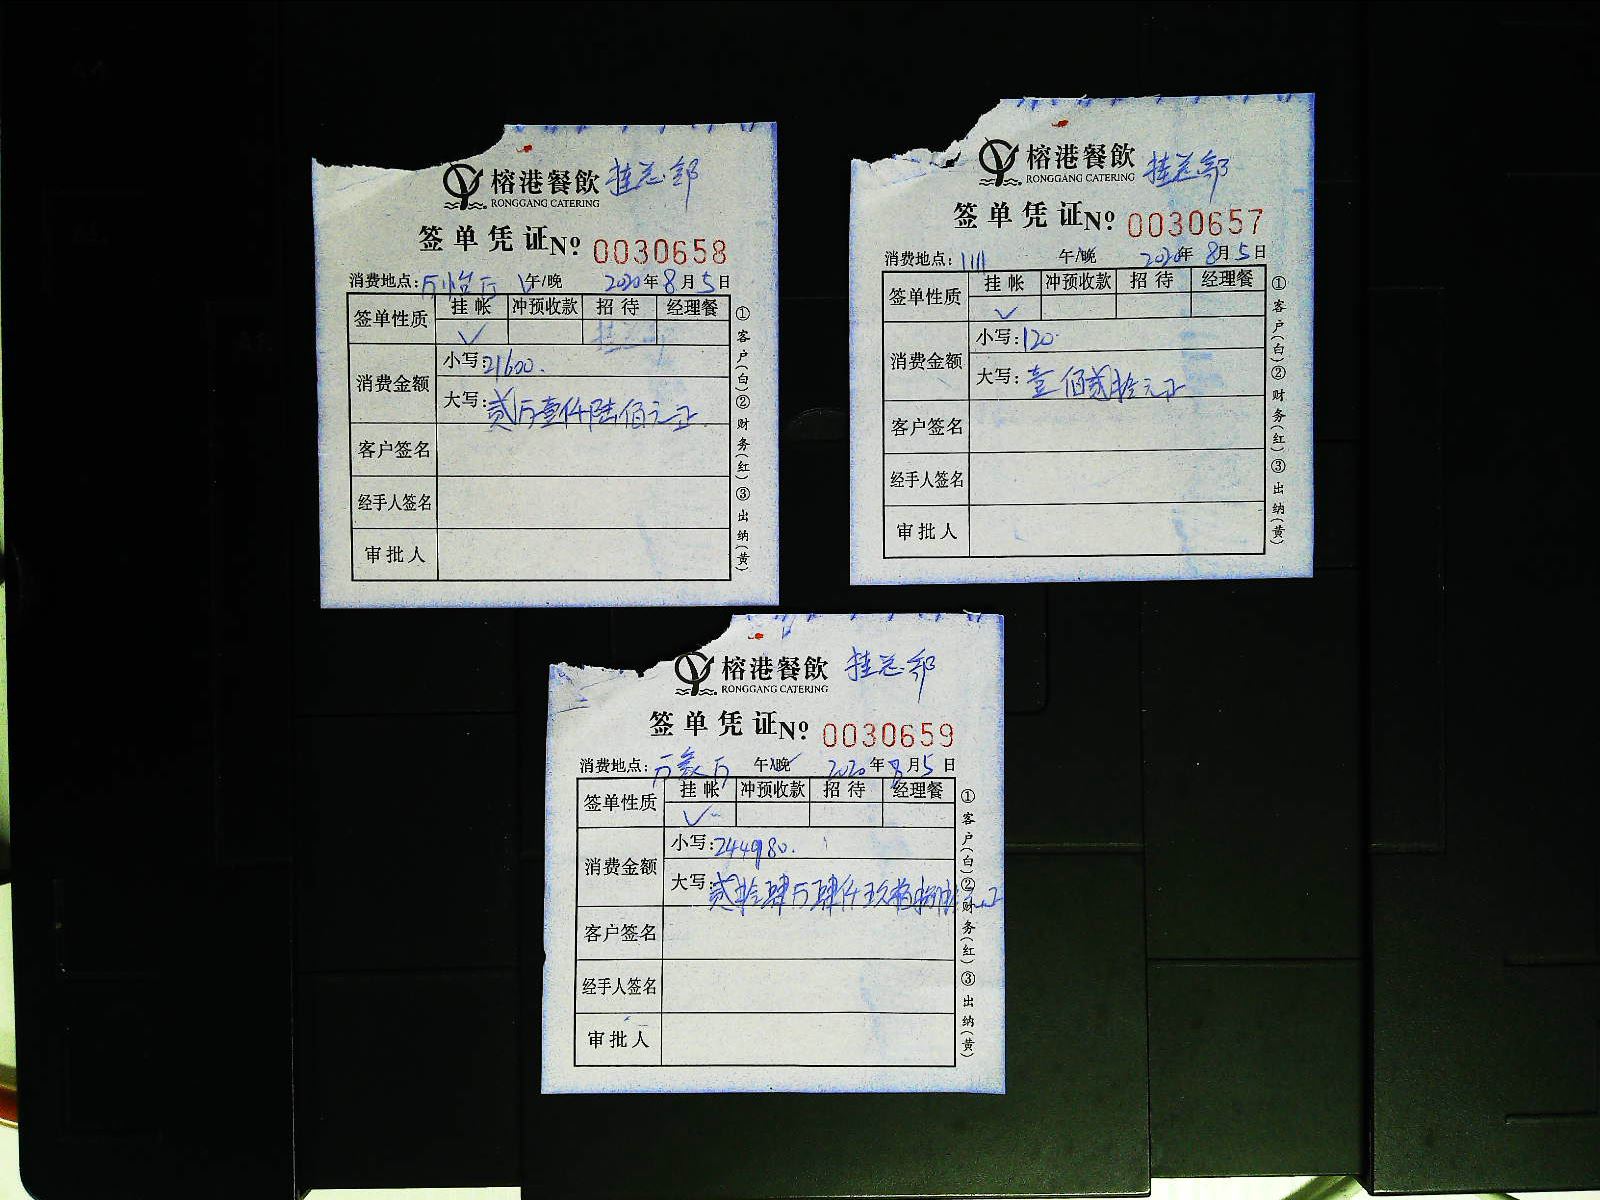 榕港餐飲 挂总部
RONGGANG CATERING
签单凭证 Nº 0030658
消费地点: 午/晚 2020年8月5日
签单性质 挂帐 冲预收款 招待 经理餐
✓
消费金额 小写:21600.
大写:贰万壹仟陆佰元正
客户签名
经手人签名
审批人
①客户(白)②财务(红)③出纳(黄)
榕港餐飲 挂总部
RONGGANG CATERING
签单凭证 Nº 0030657
消费地点:1111 午/晚 2020年8月5日
签单性质 挂帐 冲预收款 招待 经理餐
✓
消费金额 小写:120.
大写:壹佰贰拾元正
客户签名
经手人签名
审批人
①客户(白)②财务(红)③出纳(黄)
榕港餐飲 挂总部
RONGGANG CATERING
签单凭证 Nº 0030659
消费地点: 午/晚 2020年8月5日
签单性质 挂帐 冲预收款 招待 经理餐
✓
消费金额 小写:244980.
大写:贰拾肆万肆仟玖佰捌拾元正
客户签名
经手人签名
审批人
①客户(白)②财务(红)③出纳(黄)